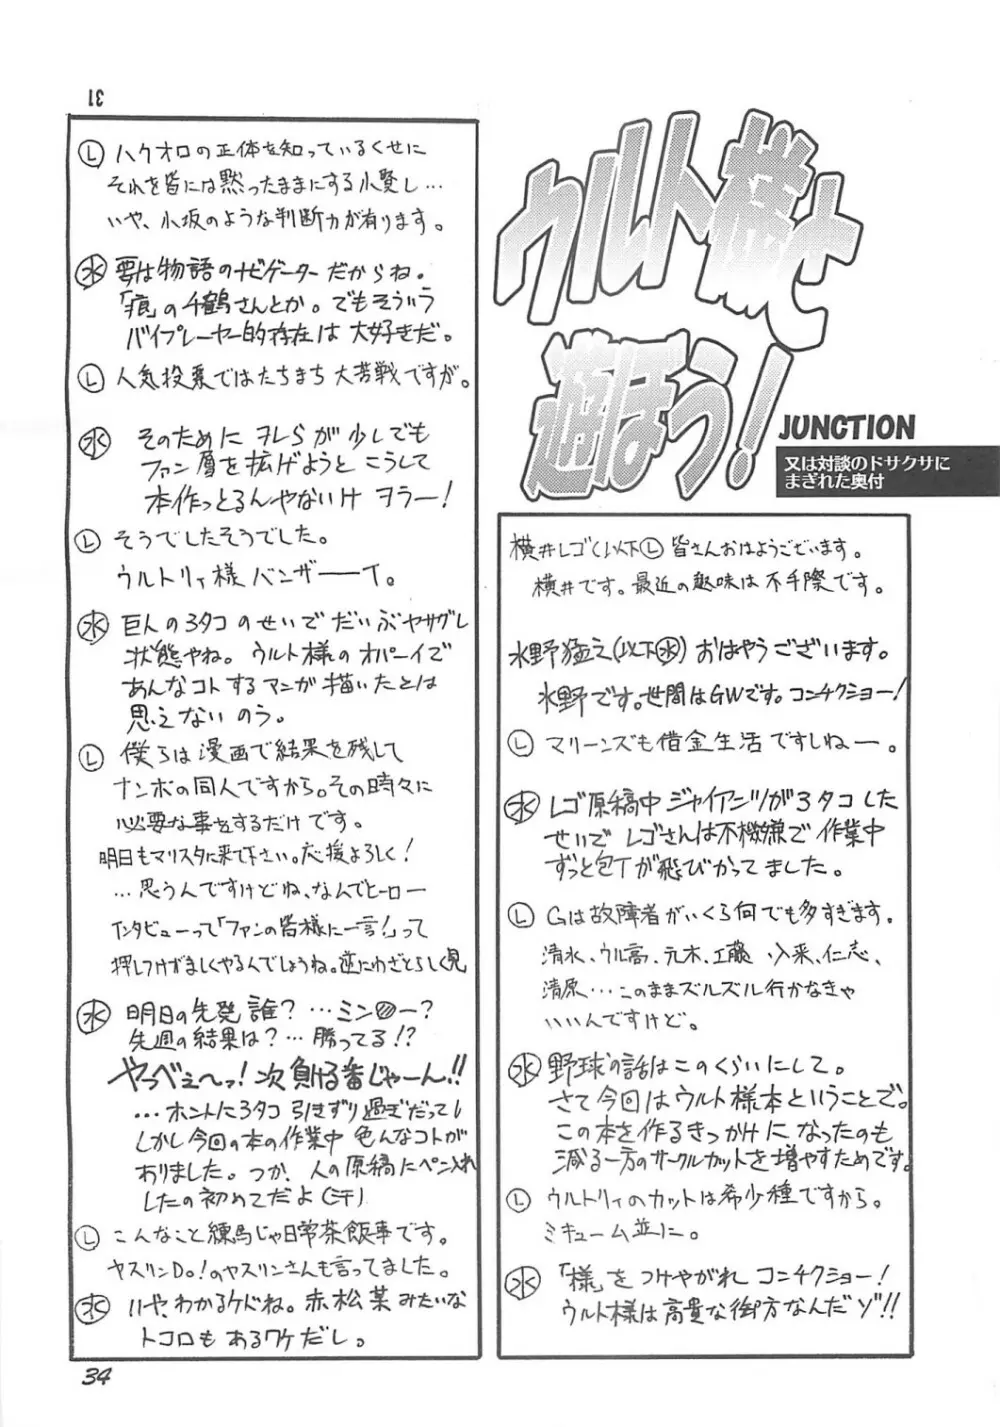 31
ウルト様と
遊ぼう!
JUNCTION
又は対談のドサクサに
まぎれた奥付
横井レゴ(以下Ⓛ) 皆さんおはようございます。
横井です。最近の趣味は不手際です。
水野猛之(以下㊌) おはようございます。
水野です。世間はGWです。コンチクショー!
Ⓛ マリーンズも借金生活ですしねー。
㊌ レゴ原稿中ジャイアンツが3タコした
せいでレゴさんは不機嫌で作業中
ずっと包丁が飛びかってました。
Ⓛ Gは故障者がいくら何でも多すぎます。
清水、ウル高、元木、工藤 入来、仁志、
清原…このままズルズル行かなきゃ
いいんですけど。
㊌ 野球の話はこのくらいにして。
さて今回はウルト様本ということで。
この本を作るきっかけになったのも
減る一方のサークルカットを増やすためです。
Ⓛ ウルトリィのカットは希少種ですから。
ミキューム並に。
㊌ 「様」をつけやがれコンチクショー!
ウルト様は高貴な御方なんだゾ!!
Ⓛ ハクオロの正体を知っているくせに
それを皆には黙ったままにする小賢し…
いや、小坂のような判断力が有ります。
㊌ 要は物語のナビゲーターだからね。
「痕」の千鶴さんとか。でもそういう
バイプレーヤー的存在は大好きだ。
Ⓛ 人気投票ではたちまち大苦戦ですが。
㊌ そのためにヲレらが少しでも
ファン層を拡げようとこうして
本作っとるんやないけヲラー!
Ⓛ そうでしたそうでした。
ウルトリィ様バンザーーイ。
㊌ 巨人の3タコのせいでだいぶヤサグレ
状態やね。ウルト様のオパーイで
あんなコトするマンガ描いたとは
思えないのう。
Ⓛ 僕らは漫画で結果を残して
ナンボの同人ですから。その時々に
必要な事をするだけです。
明日もマリスタに来て下さい。応援よろしく!
…思うんですけどね、なんでヒーロー
インタビューって「ファンの皆様に一言!」って
押しつけがましくやるんでしょうね。逆にわざとらしく見
㊌ 明日の先発誰?…ミン〇ー?
先週の結果は?…勝ってる!?
やっべぇ〜っ!次負ける番じゃーん!!
…ホントに3タコ引きずり過ぎだってし
しかし今回の本の作業中色んなコトが
ありました。つか、人の原稿にペン入れ
したの初めてだよ(汗)
Ⓛ こんなこと練馬じゃ日常茶飯事です。
ヤスリンDo!のヤスリンさんも言ってました。
㊌ いや、わかるケドね。赤松葉みたいな
トコロもあるワケだし。
34